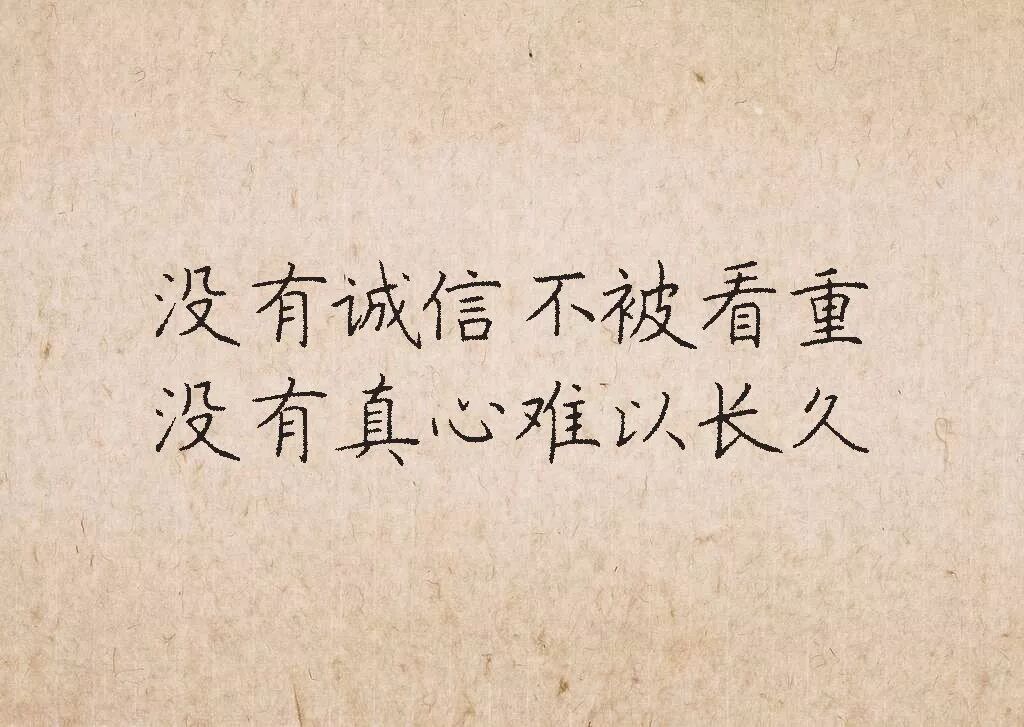 没有诚信不被看重
没有真心难以长久